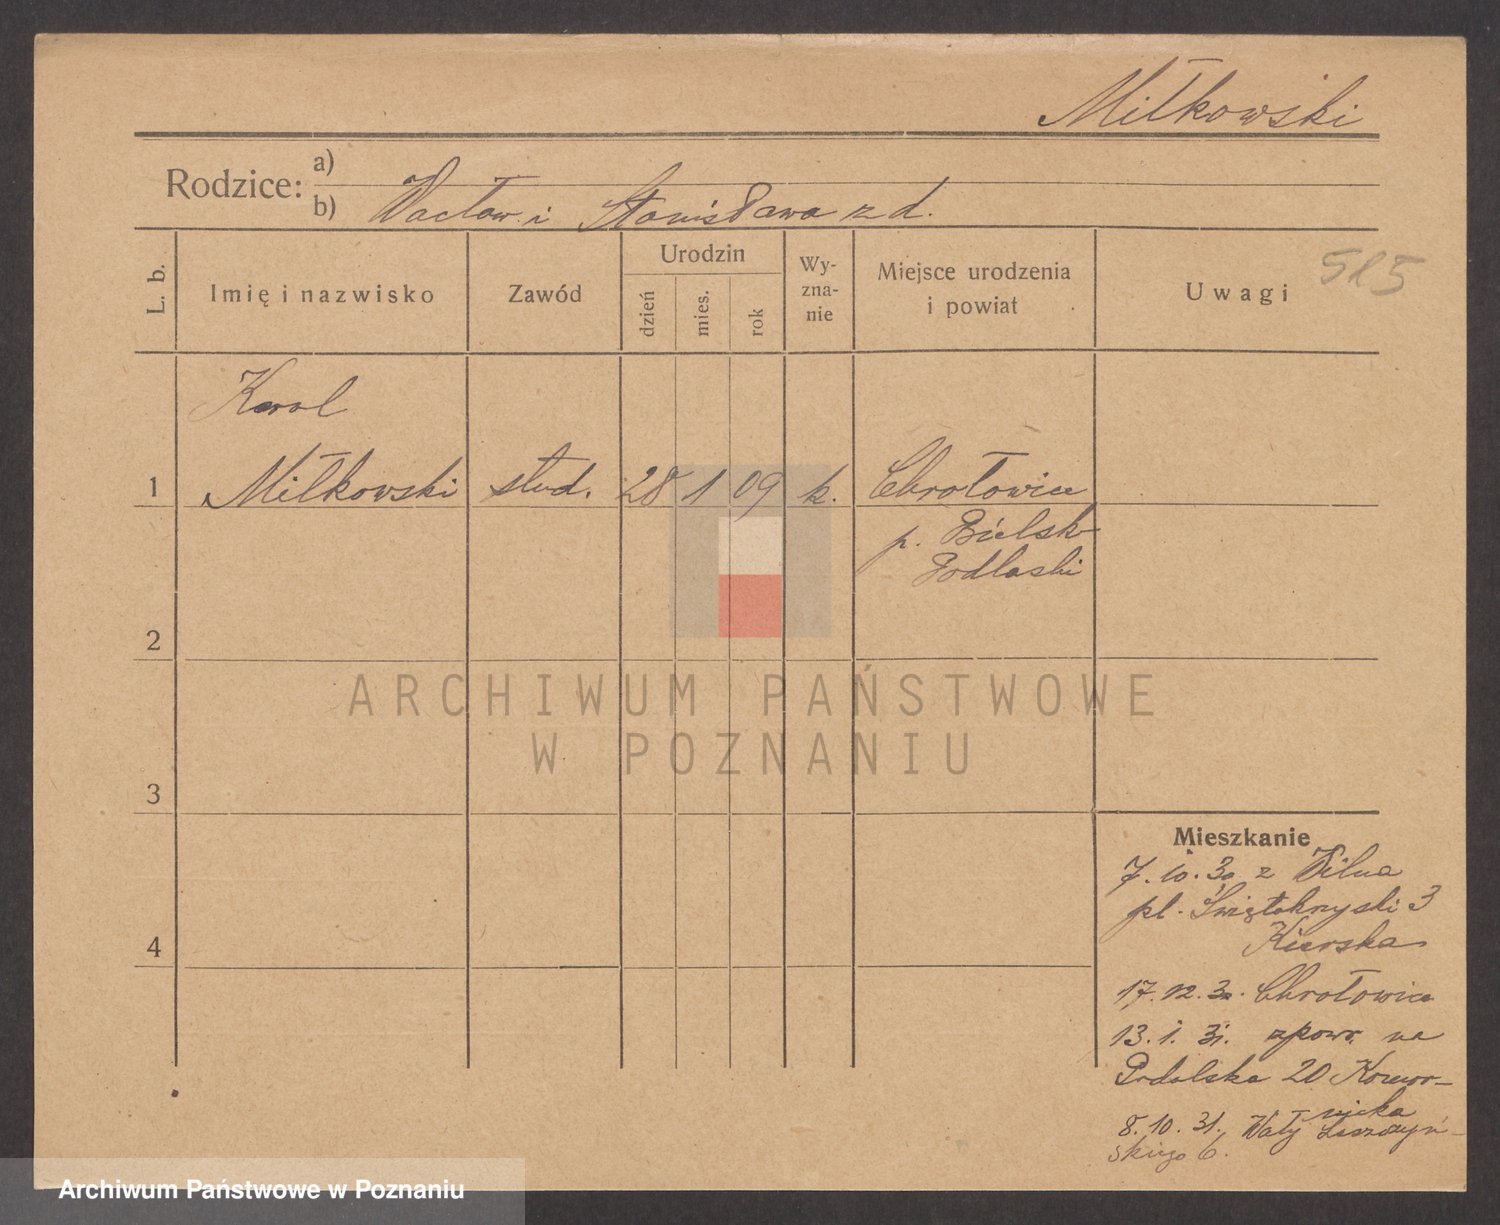 Miłkowski
Rodzice: a)
b) Wacław i Stanisława z d.
L. b.
Imię i nazwisko
Zawód
Urodzin
dzień
mies.
rok
Wy-
zna-
nie
Miejsce urodzenia
i powiat
Uwagi
515
Karol
1 Miłkowski stud. 28 1 09 k. Chrołowice
p. Bielsk
Podlaski
2
3
4
ARCHIWUM PAŃSTWOWE
W POZNANIU
Mieszkanie
7.10.30 z Wilna
pl. Świętokrzyski 3
17.12.30. Chrołowice
13.1.31. zpowr. na
Podolska 20
8.10.31. Wały Leszczyń-
skiego 6.
Archiwum Państwowe w Poznaniu